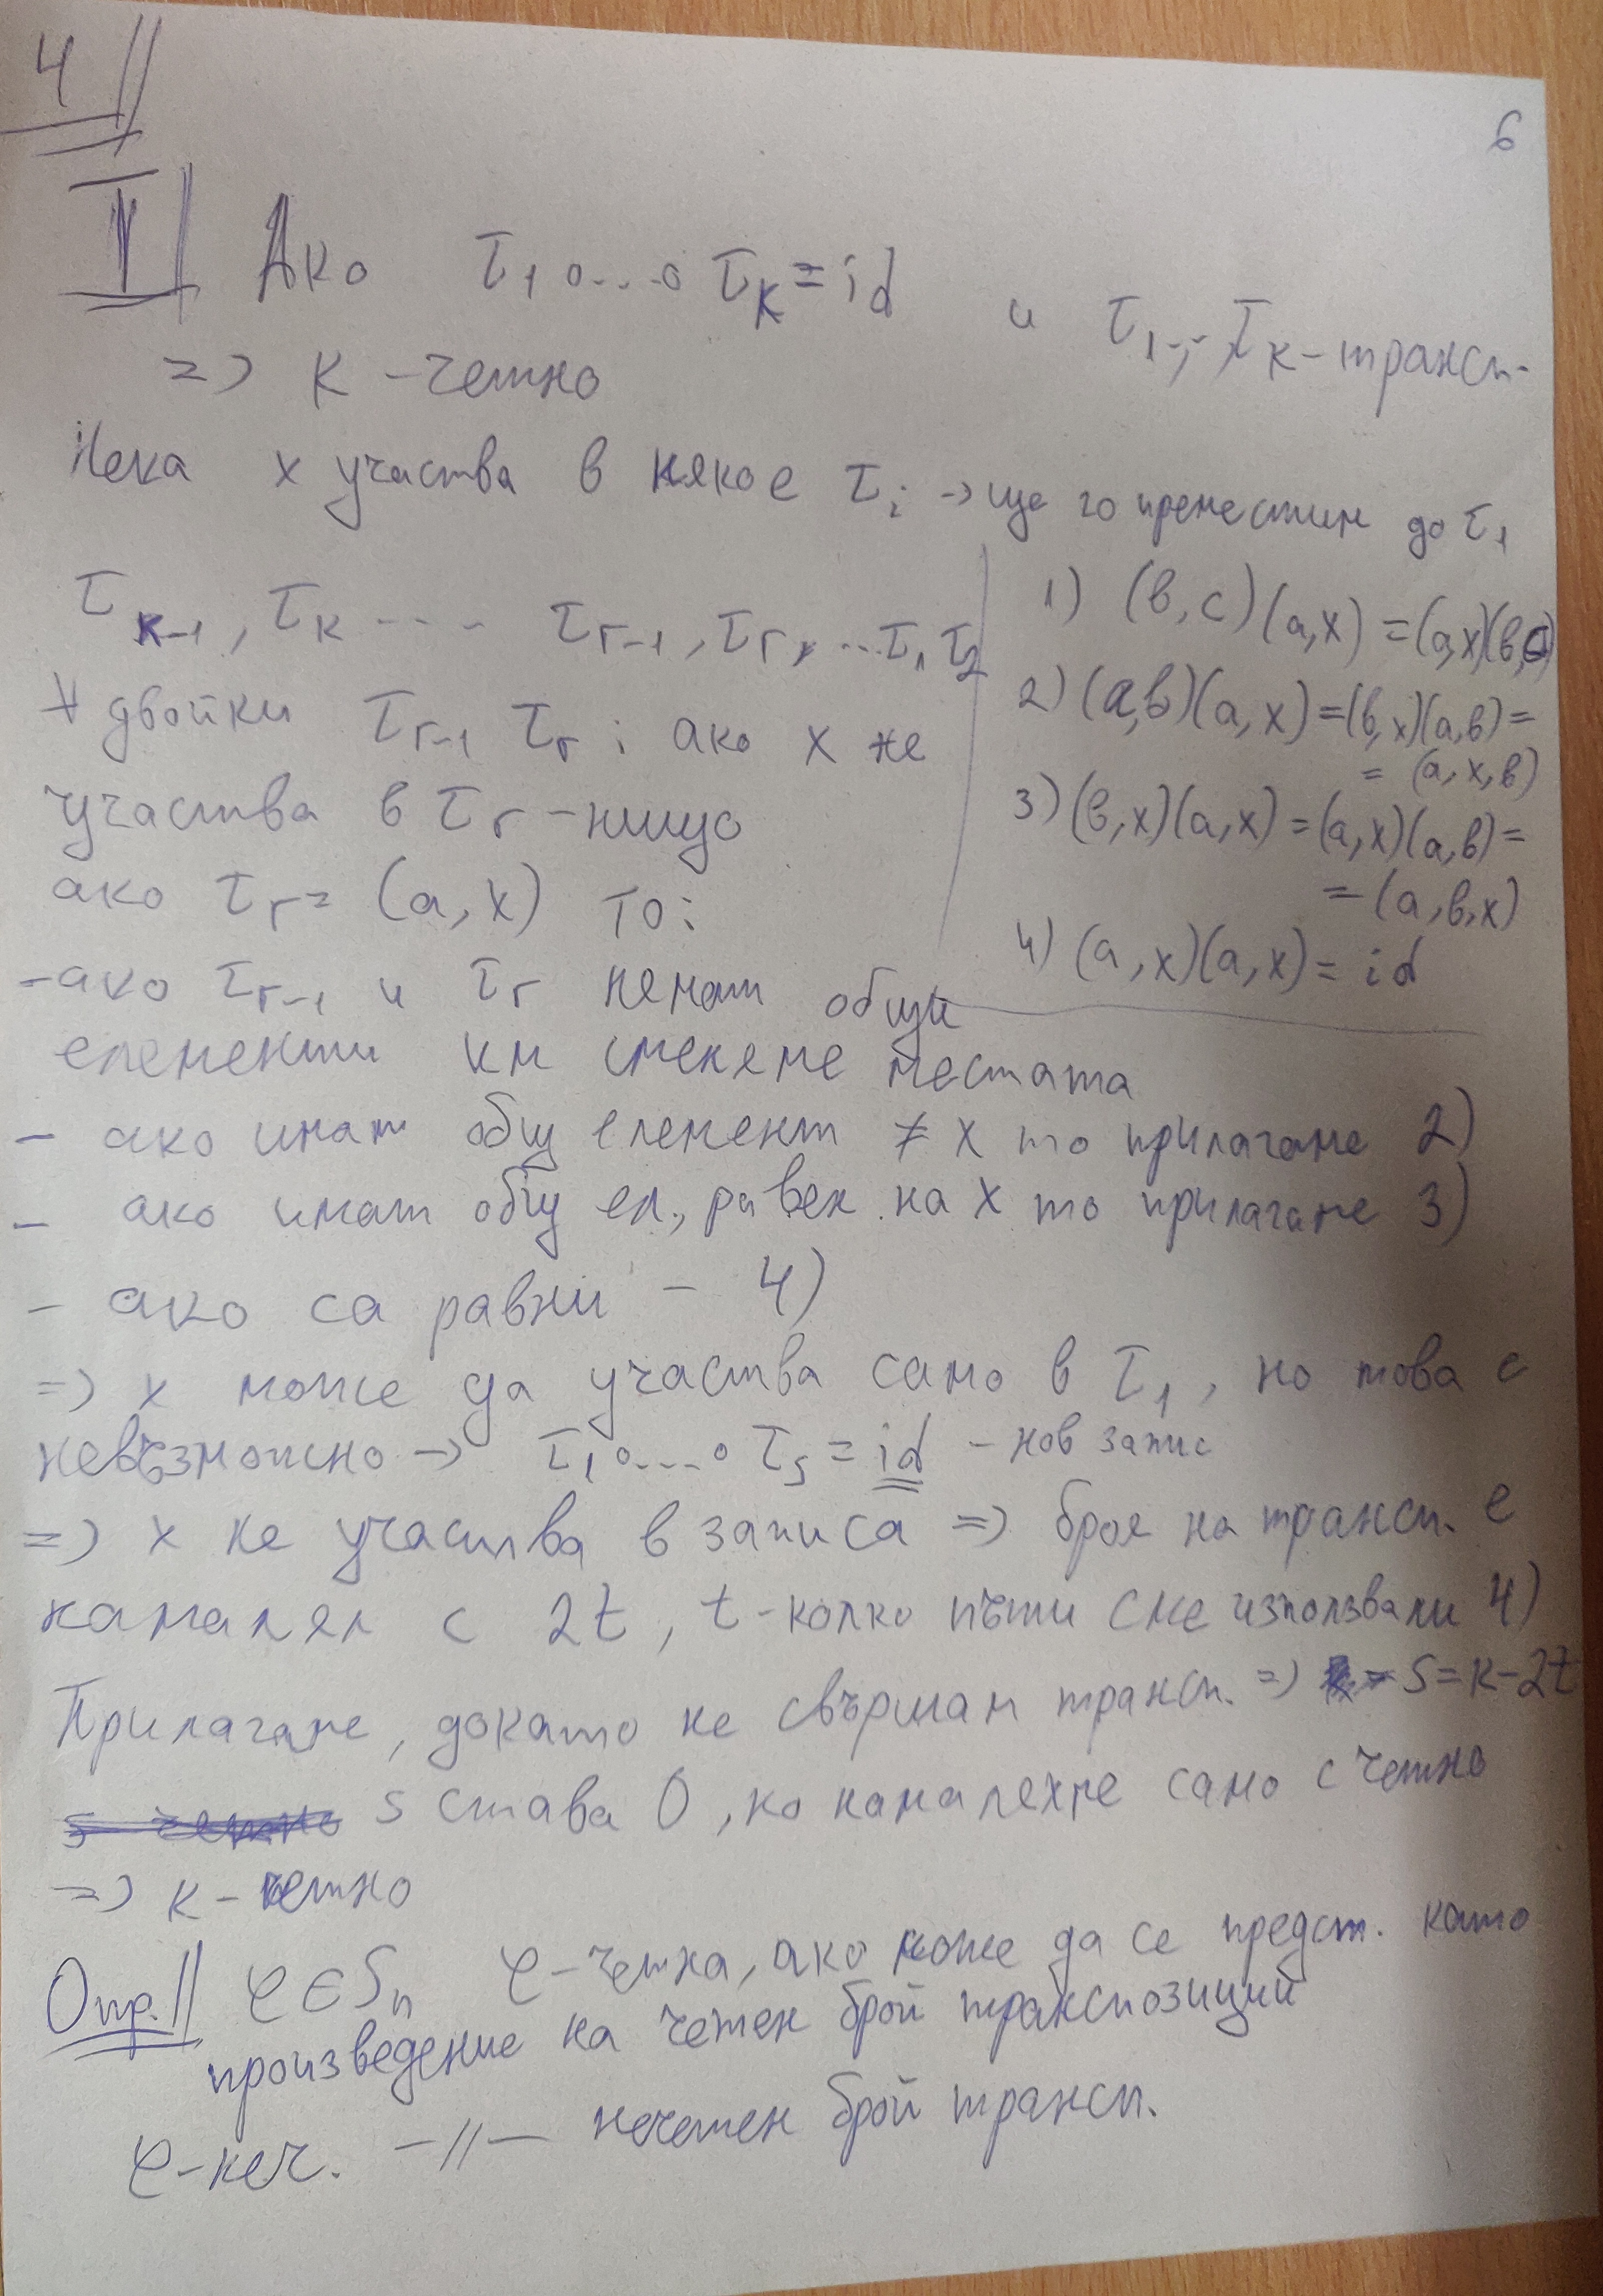 4//
6
T// Ако τ₁∘...∘τₖ = id и τ₁,...,τₖ - трансп.
=> k - четно
Нека x участва в някое τᵢ -> ще го преместим до τ₁
τₖ₋₁, τₖ .... τᵣ₋₁, τᵣ, ... τ₁ τ₂
∀ двойки τᵣ₋₁ τᵣ : ако x не
участва в τᵣ - нищо
ако τᵣ = (a, x) то:
1) (b, c)(a, x) = (a, x)(b, c)
2) (a, b)(a, x) = (b, x)(a, b) =
= (a, x, b)
3) (b, x)(a, x) = (a, x)(a, b) =
= (a, b, x)
4) (a, x)(a, x) = id
- ако τᵣ₋₁ и τᵣ нямат общи
елементи им сменяме местата
- ако имат общ елемент ≠ x то прилагаме 2)
- ако имат общ ел., равен на x то прилагаме 3)
- ако са равни - 4)
=> x може да участва само в τ₁, но това е
невъзможно -> τ₁∘....∘τₛ = id - нов запис
=> x не участва в записа => броя на трансп. е
намалял с 2t, t - колко пъти сме използвали 4)
Прилагаме, докато не свършат трансп. => s = k - 2t
s става 0, но намаляхме само с четно
=> k - четно
Опр.// φ ∈ Sₙ φ - четна, ако може да се предст. като
произведение на четен брой транспозиции
φ - неч. —//— нечетен брой трансп.